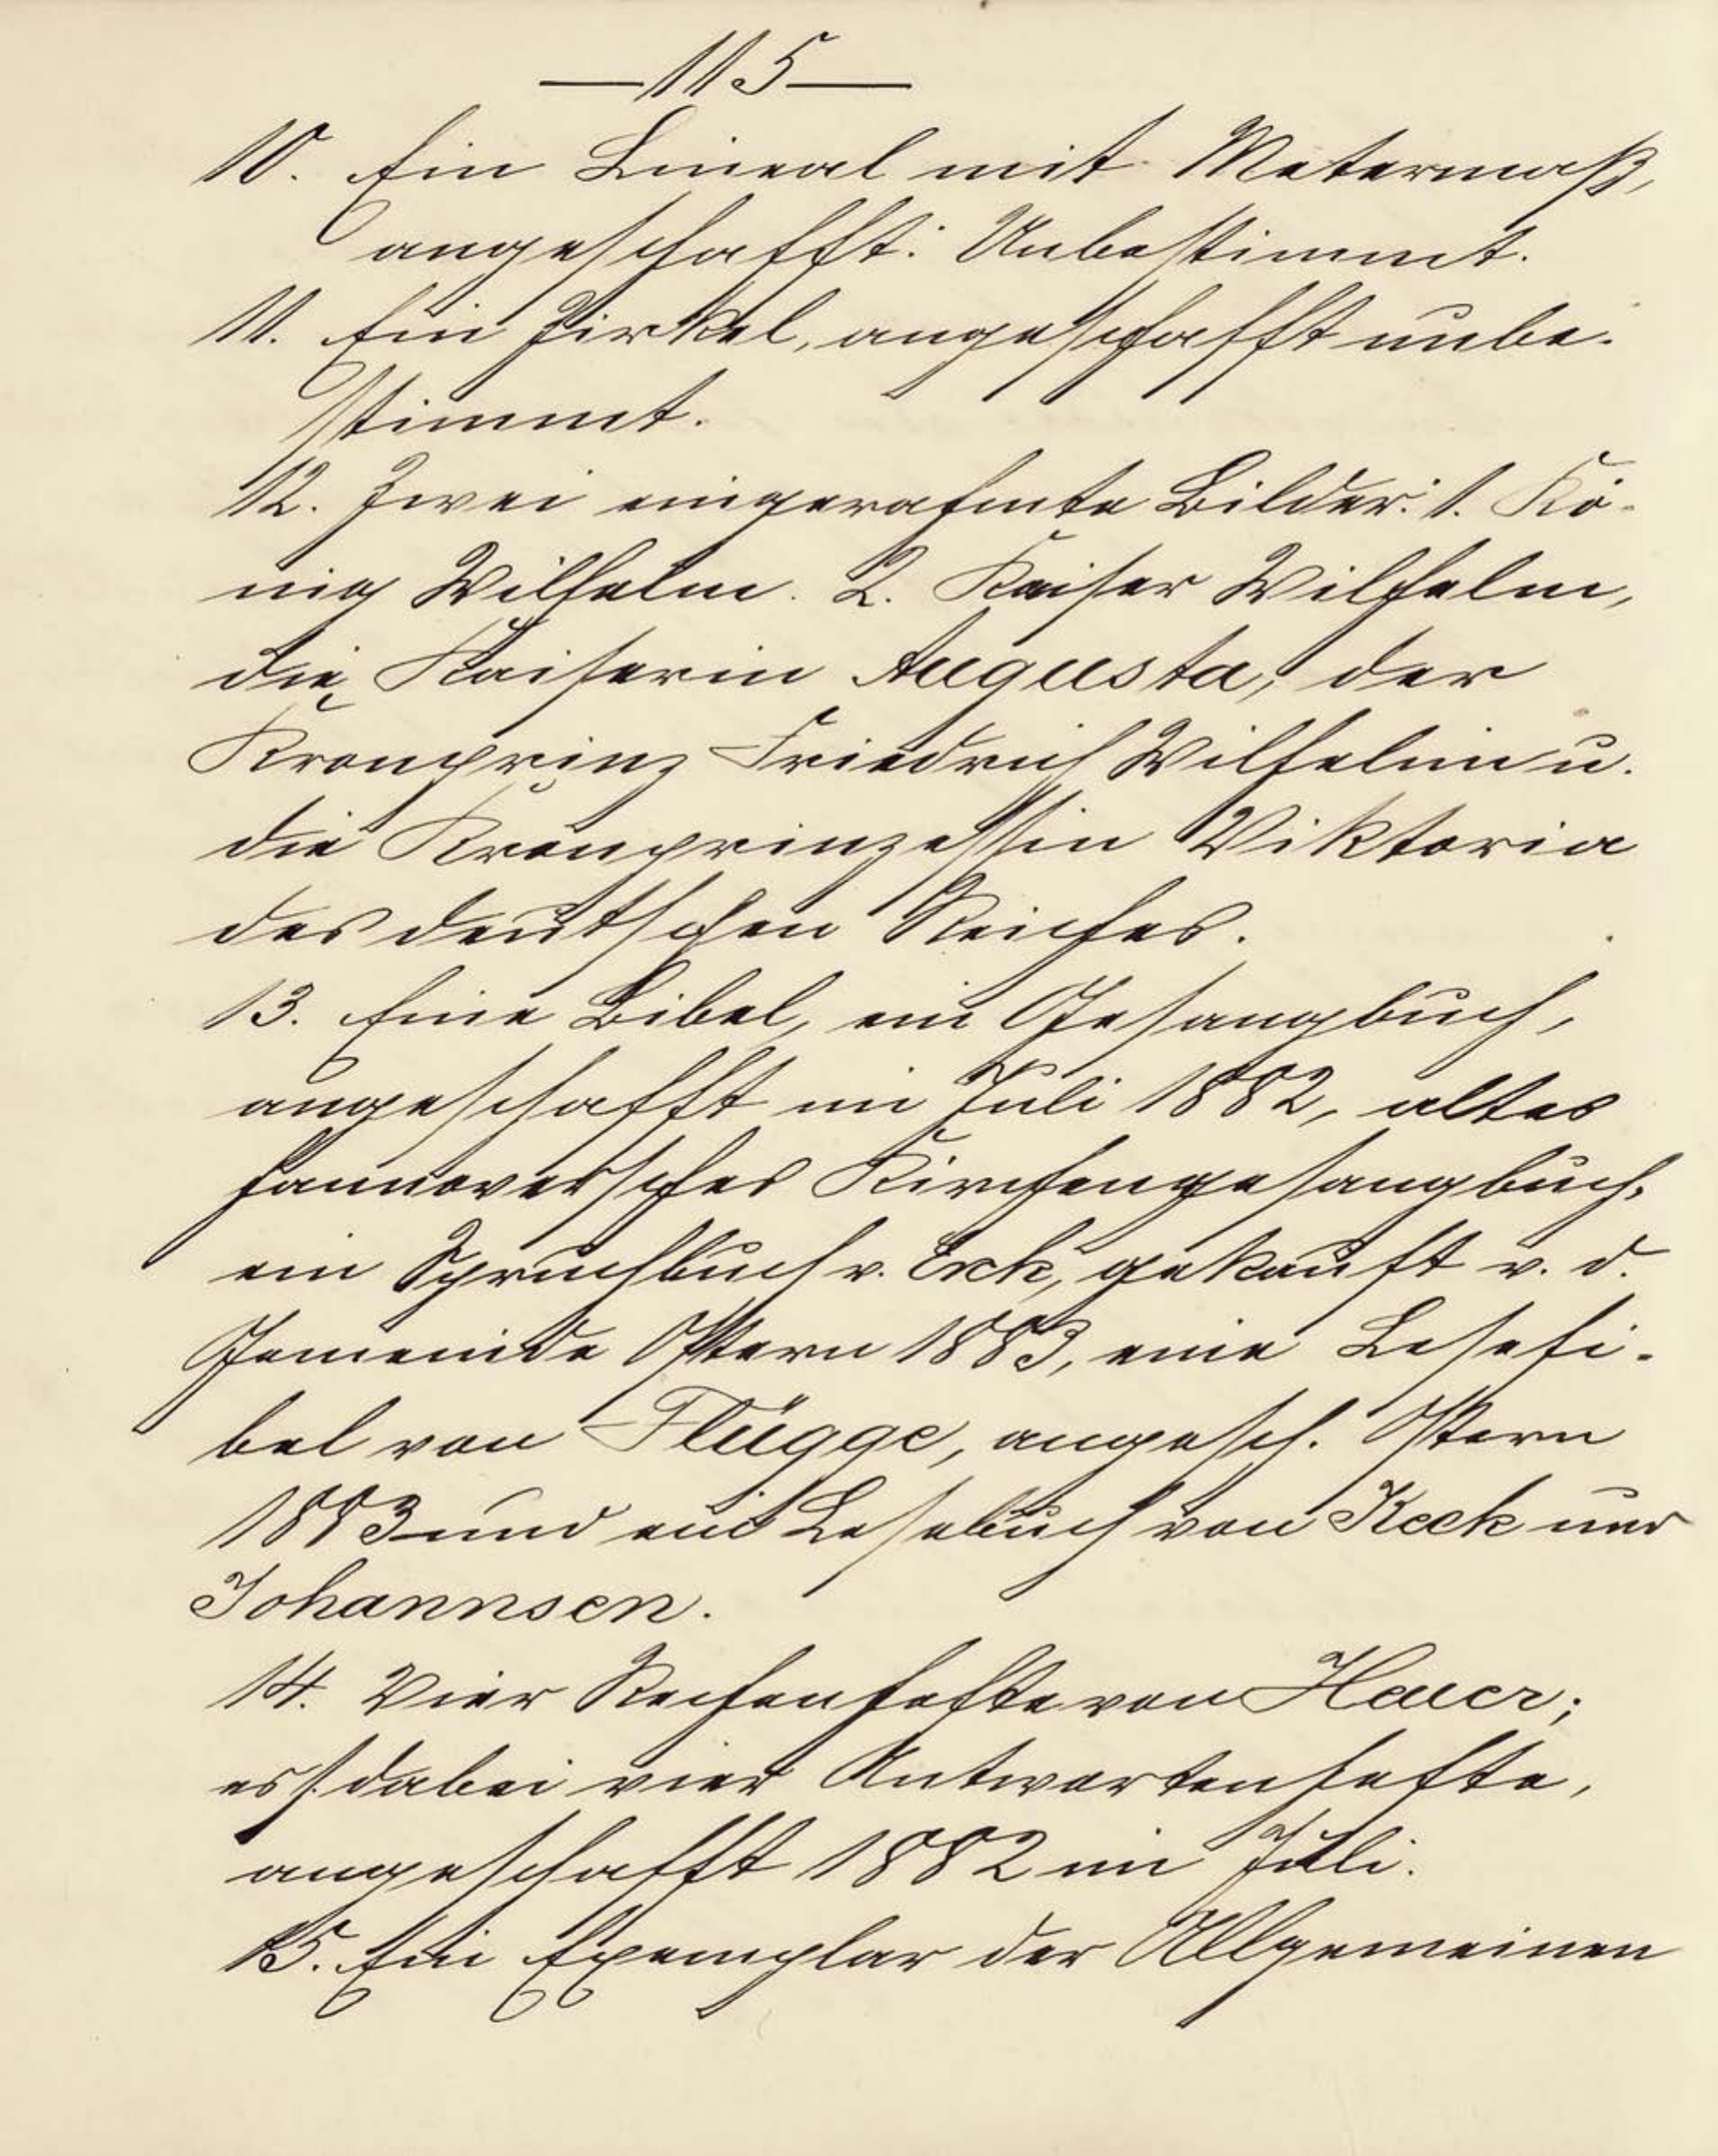 —115—
10. Ein Lineal mit Metermaß,
angeschafft: Unbestimmt.
11. Ein Zirkel, angeschafft unbe-
stimmt.
12. Zwei eingerahmte Bilder: 1. Kö-
nig Wilhelm. 2. Kaiser Wilhelm,
die Kaiserin Augusta, der
Kronprinz Friedrich Wilhelm u.
die Kronprinzessin Viktoria
des deutschen Reiches.
13. Eine Bibel, ein Gesangbuch,
angeschafft im Juli 1882, altes
hannoversches Kirchengesangbuch,
ein Spruchbuch v. Erck, gekauft v. d.
Gemeinde Ostern 1883, eine Lesefi-
bel von Flügge, angesch. Ostern
1883 und ein Lesebuch von Keck und
Johannsen.
14. Vier Rechenhefte von Heuer;
es s. dabei vier Antwortenhefte,
angeschafft 1882 im Juli.
15. Ein Exemplar der Allgemeinen